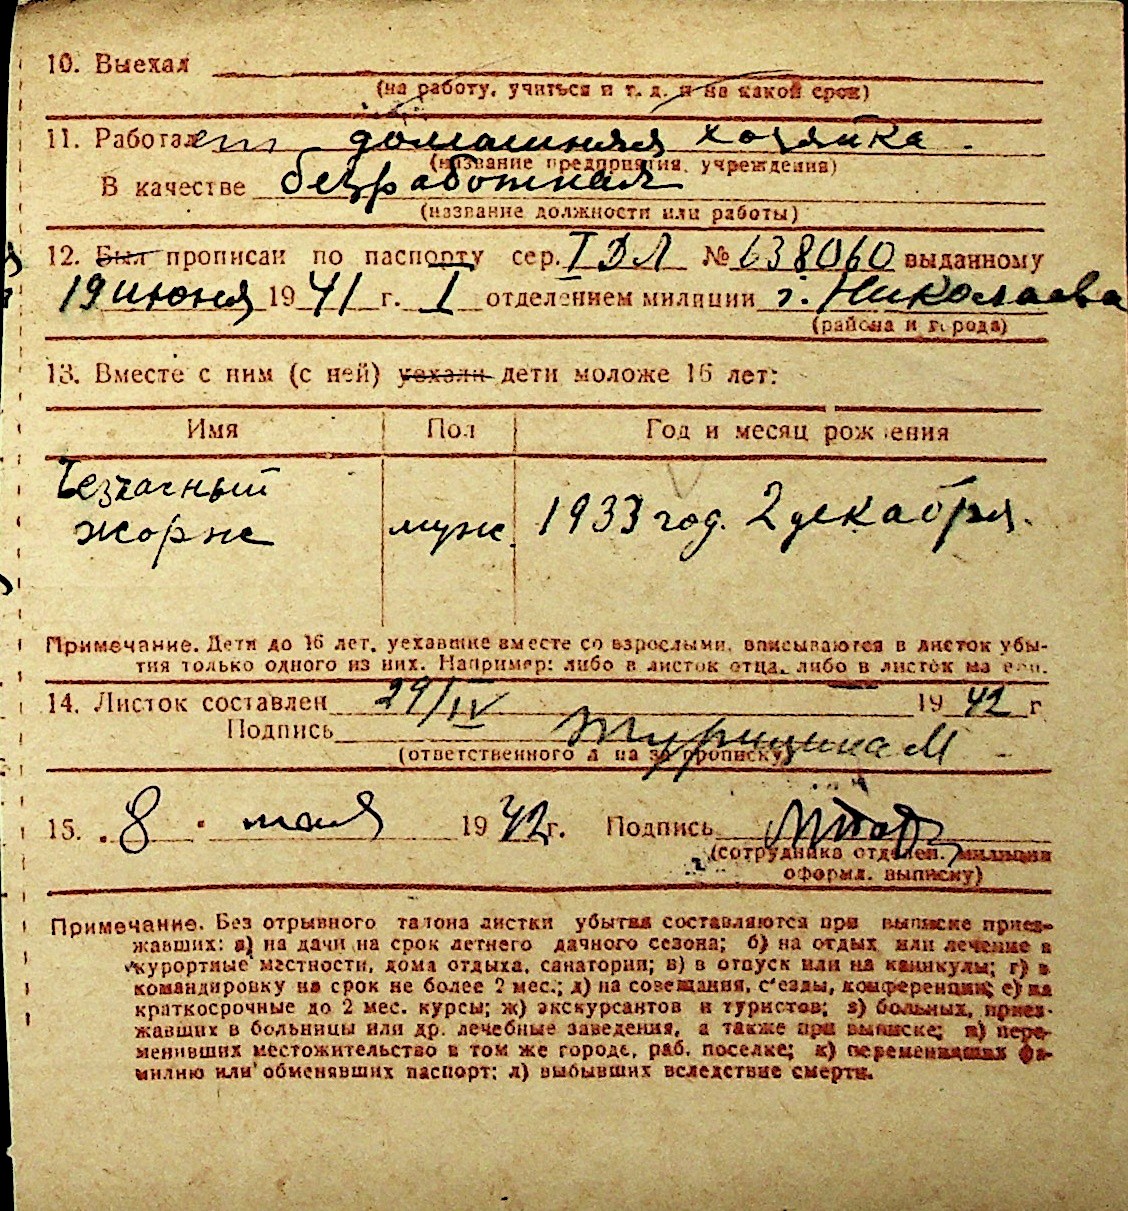 10. Выехал
(на работу, учиться и т. д. и на какой срок)
11. Работает домашняя хозяйка.
(название предприятия, учреждения)
В качестве безработная
(название должности или работы)
12. Был прописан по паспорту сер. I ДЛ № 638060 выданному
19 июня 1941 г. I отделением милиции г. Николаева
(района и города)
13. Вместе с ним (с ней) уехали дети моложе 16 лет:
Имя Пол Год и месяц рождения
Безчасный
Жорж муж. 1933 год. 2 декабря.
Примечание. Дети до 16 лет, уехавшие вместе со взрослыми, вписываются в листок убы-
тия только одного из них. Например: либо в листок отца, либо в листок матери.
14. Листок составлен 29/IV 1942 г
Подпись
(ответственного лица за прописку)
15. 8 мая 1942 г. Подпись
(сотрудника отделен. милиции
оформл. выписку)
Примечание. Без отрывного талона листки убытия составляются при выписке приез-
жавших: а) на дачи на срок летнего дачного сезона; б) на отдых или лечение в
курортные местности, дома отдыха, санатории; в) в отпуск или на каникулы; г) в
командировку на срок не более 2 мес.; д) на совещания, с'езды, конференции; е) на
краткосрочные до 2 мес. курсы; ж) экскурсантов и туристов; з) больных, приез-
жавших в больницы или др. лечебные заведения, а также при выписке; и) пере-
менивших местожительство в том же городе, раб. поселке; к) переменивших фа-
милию или обменявших паспорт; л) выбывших вследствие смерти.